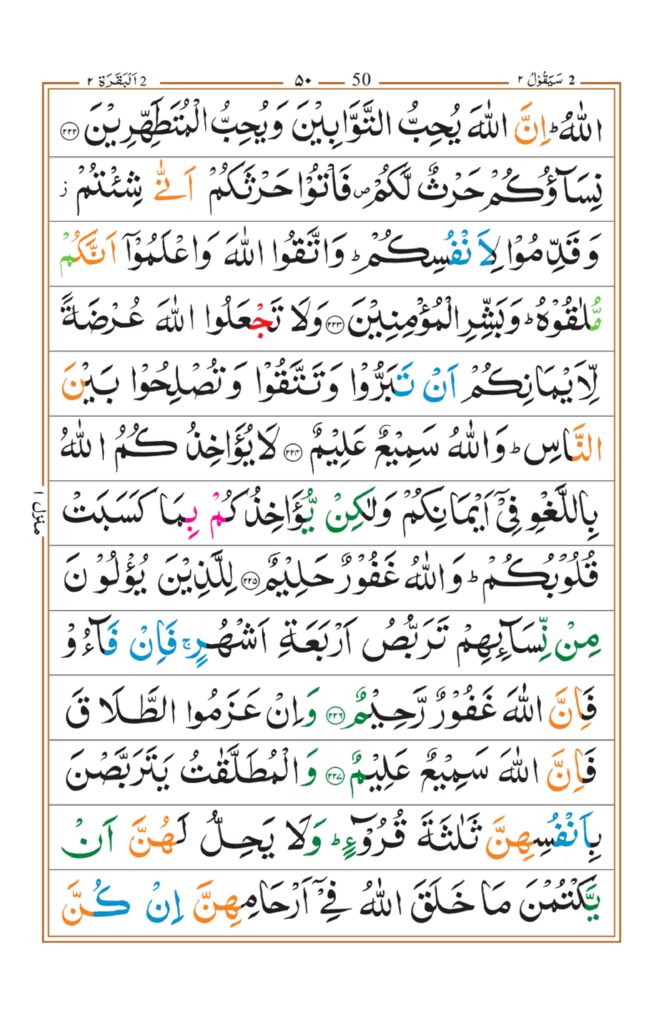 2 سَيَقُوْلُ ٢ — 50 — ٥٠ — 2 اَلْبَقَرَة ٢
اللّٰهُ ؕ اِنَّ اللّٰهَ يُحِبُّ التَّوَّابِيْنَ وَيُحِبُّ الْمُتَطَهِّرِيْنَ ﴿۲۲۲﴾
نِسَآؤُكُمْ حَرْثٌ لَّكُمْ ص فَاْتُوْا حَرْثَكُمْ اَنّٰى شِئْتُمْ ز
وَ قَدِّمُوْا لِاَنْفُسِكُمْ ؕ وَاتَّقُوا اللّٰهَ وَاعْلَمُوْٓا اَنَّكُمْ
مُّلٰقُوْهُ ؕ وَبَشِّرِ الْمُؤْمِنِيْنَ ﴿۲۲۳﴾ وَلَا تَجْعَلُوا اللّٰهَ عُرْضَةً
لِّاَيْمَانِكُمْ اَنْ تَبَرُّوْا وَتَتَّقُوْا وَتُصْلِحُوْا بَيْنَ
النَّاسِ ؕ وَاللّٰهُ سَمِيْعٌ عَلِيْمٌ ﴿۲۲۴﴾ لَا يُؤَاخِذُ كُمُ اللّٰهُ
بِاللَّغْوِ فِىْٓ اَيْمَانِكُمْ وَلٰكِنْ يُّؤَاخِذُكُمْ بِمَا كَسَبَتْ
قُلُوْبُكُمْ ؕ وَاللّٰهُ غَفُوْرٌ حَلِيْمٌ ﴿۲۲۵﴾ لِلَّذِيْنَ يُؤْلُوْنَ
مِنْ نِّسَآئِهِمْ تَرَبُّصُ اَرْبَعَةِ اَشْهُرٍ ۚ فَاِنْ فَآءُوْ
فَاِنَّ اللّٰهَ غَفُوْرٌ رَّحِيْمٌ ﴿۲۲۶﴾ وَاِنْ عَزَمُوا الطَّلَاقَ
فَاِنَّ اللّٰهَ سَمِيْعٌ عَلِيْمٌ ﴿۲۲۷﴾ وَالْمُطَلَّقٰتُ يَتَرَبَّصْنَ
بِاَنْفُسِهِنَّ ثَلٰثَةَ قُرُوْٓءٍ ؕ وَلَا يَحِلُّ لَهُنَّ اَنْ
يَّكْتُمْنَ مَا خَلَقَ اللّٰهُ فِىْٓ اَرْحَامِهِنَّ اِنْ كُنَّ
منزل ١